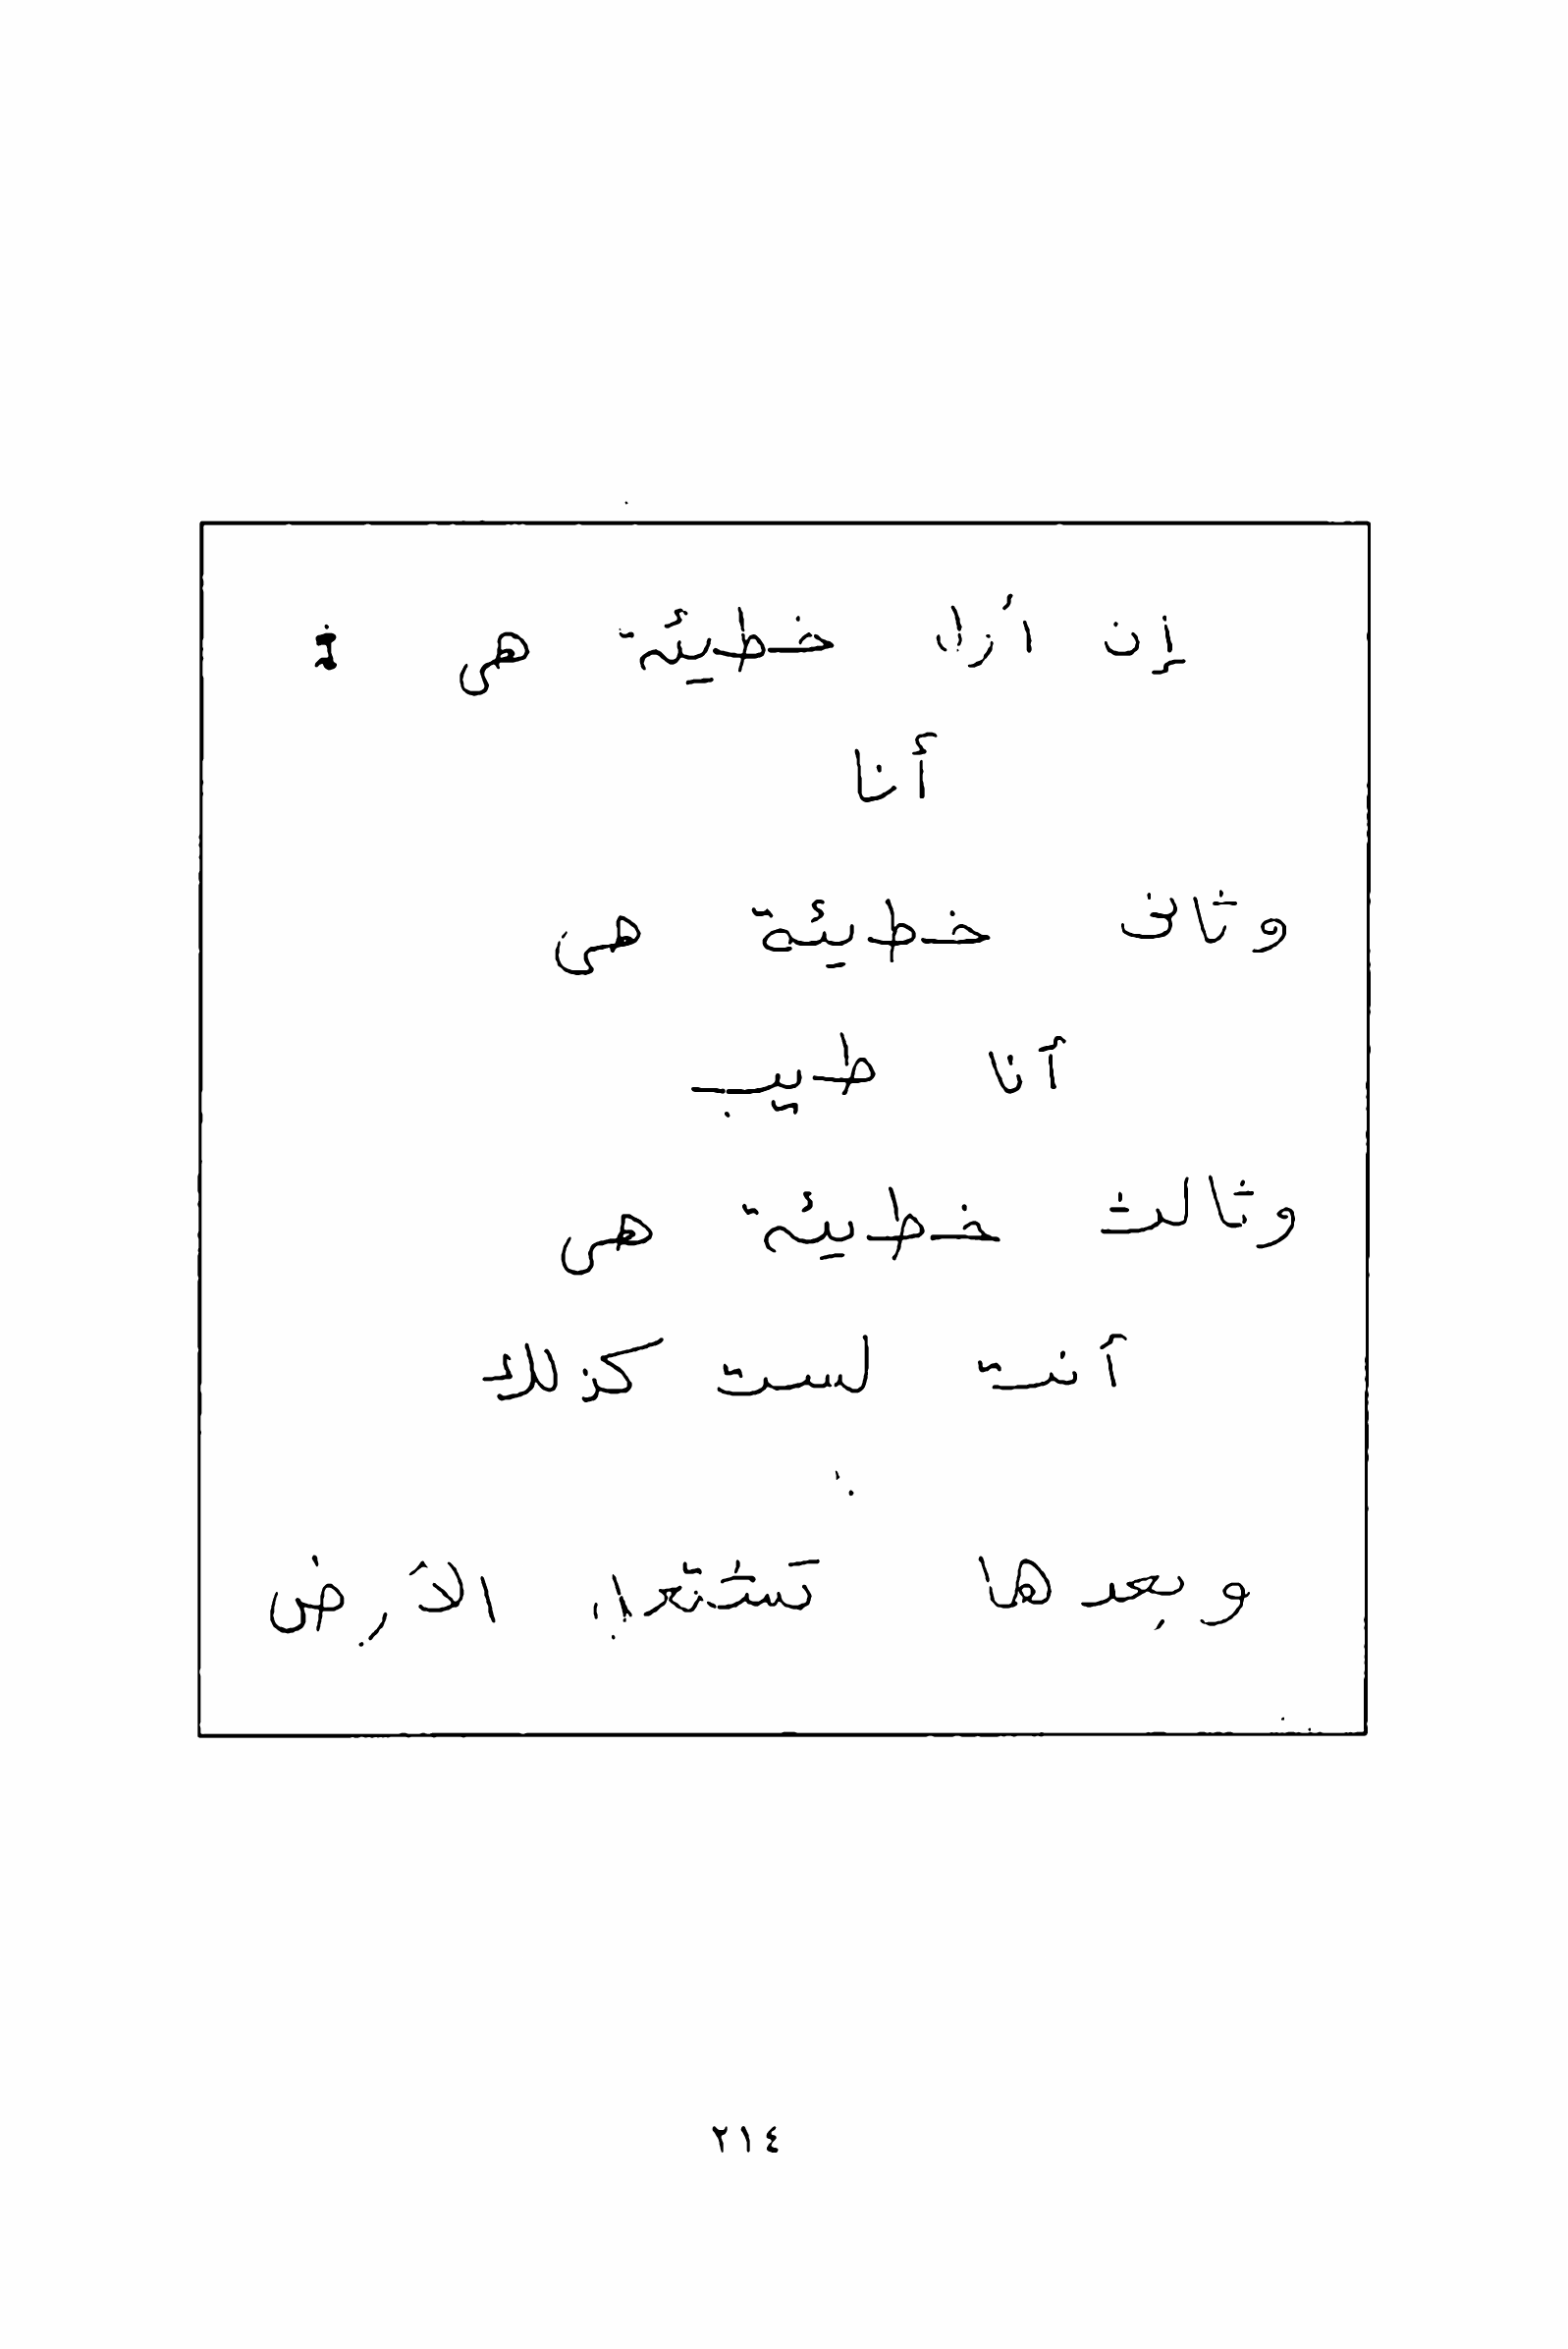 إن أول خطيئة هى :
أنا
وثانى خطيئة هى
أنا طيب
وثالث خطيئة هى
أنت لست كذلك
وبعدها تشتعل الأرض
٢١٤